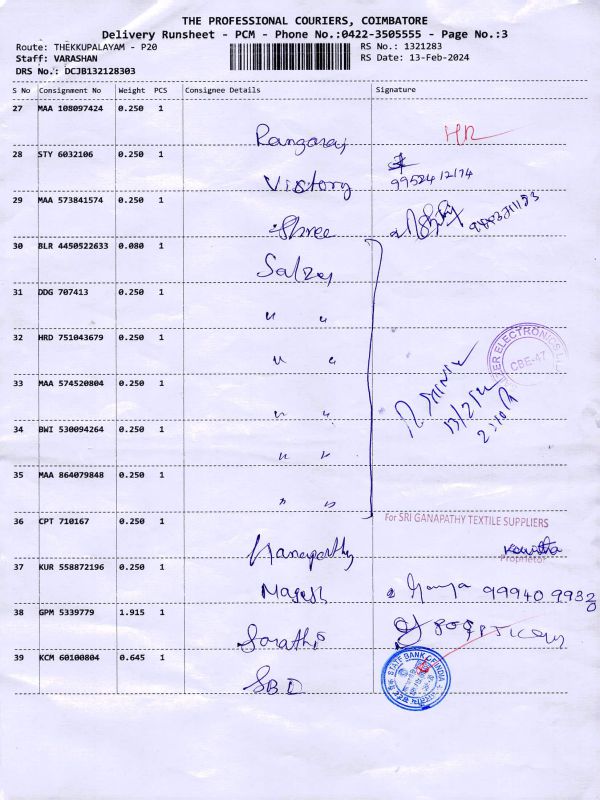 THE PROFESSIONAL COURIERS, COIMBATORE
Delivery Runsheet - PCM - Phone No.:0422-3505555 - Page No.:3
Route: THEKKUPALAYAM - P20
RS No.: 1321283
Staff: VARASHAN
RS Date: 13-Feb-2024
DRS No.: DCJB132128303
S No Consignment No Weight PCS Consignee Details Signature
27 MAA 108097424 0.250 1
Rangaraj HR
28 STY 6032106 0.250 1
Victory
29 MAA 573841574 0.250 1
Shree
30 BLR 4450522633 0.080 1
Salzer
31 DDG 707413 0.250 1
" "
32 HRD 751043679 0.250 1
" "
33 MAA 574520804 0.250 1
" "
ELECTRONICS
CBE-47
13/2/24
34 BWI 530094264 0.250 1
" "
35 MAA 864079848 0.250 1
" "
36 CPT 710167 0.250 1
For SRI GANAPATHY TEXTILE SUPPLIERS
Kavitha
Proprietor
37 KUR 558872196 0.250 1
Magesh 99940 99320
38 GPM 5339779 1.915 1
Sarathi
39 KCM 60100804 0.645 1
SBI
STATE BANK OF INDIA